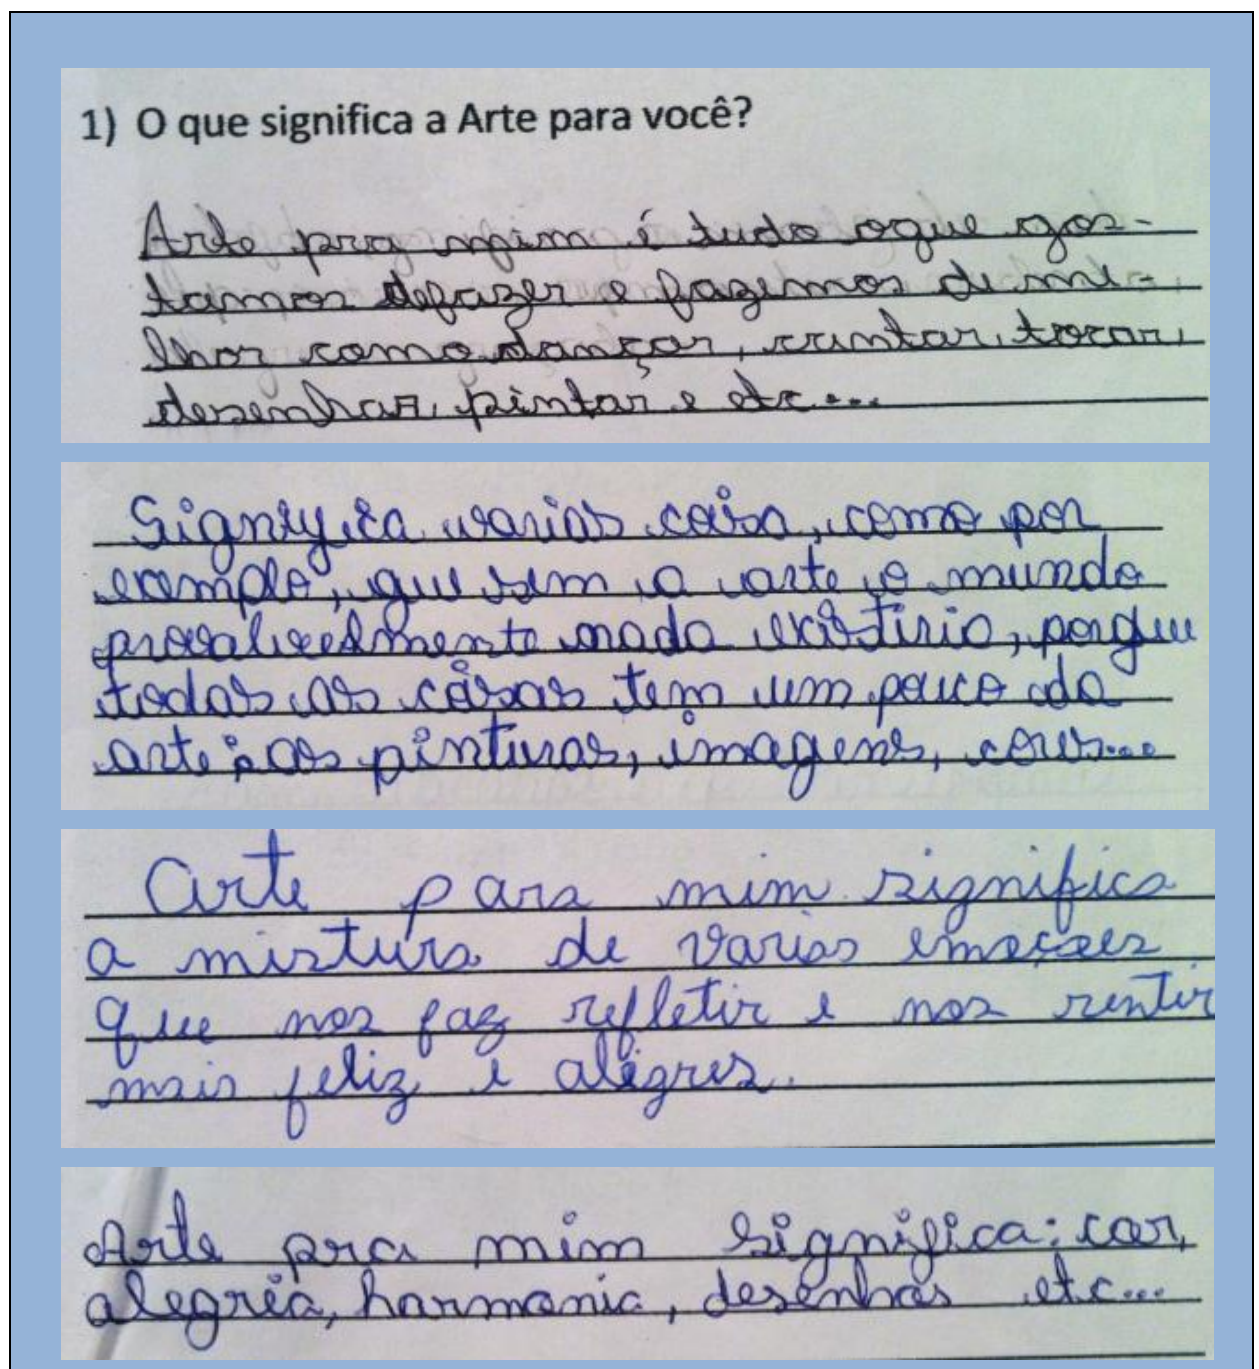 1) O que significa a Arte para você?
Arte pra mim é tudo oque gos-
tamos defazer e fazemos de me-
lhor como dançar, cantar, tocar,
desenhar, pintar e etc...
Signifyica varias coisa, como por
exemplo, que sem a arte o mundo
provalveelmente nada existiria, porque
todas as coisas tem um pouco da
arte: as pinturas, imagens, cores...
Arte para mim significa
a mistura de varias emoções
que nos faz refletir e nos sentir
mais feliz e alegres.
Arte pra mim significa: cor,
alegria, harmonia, desenhos etc...